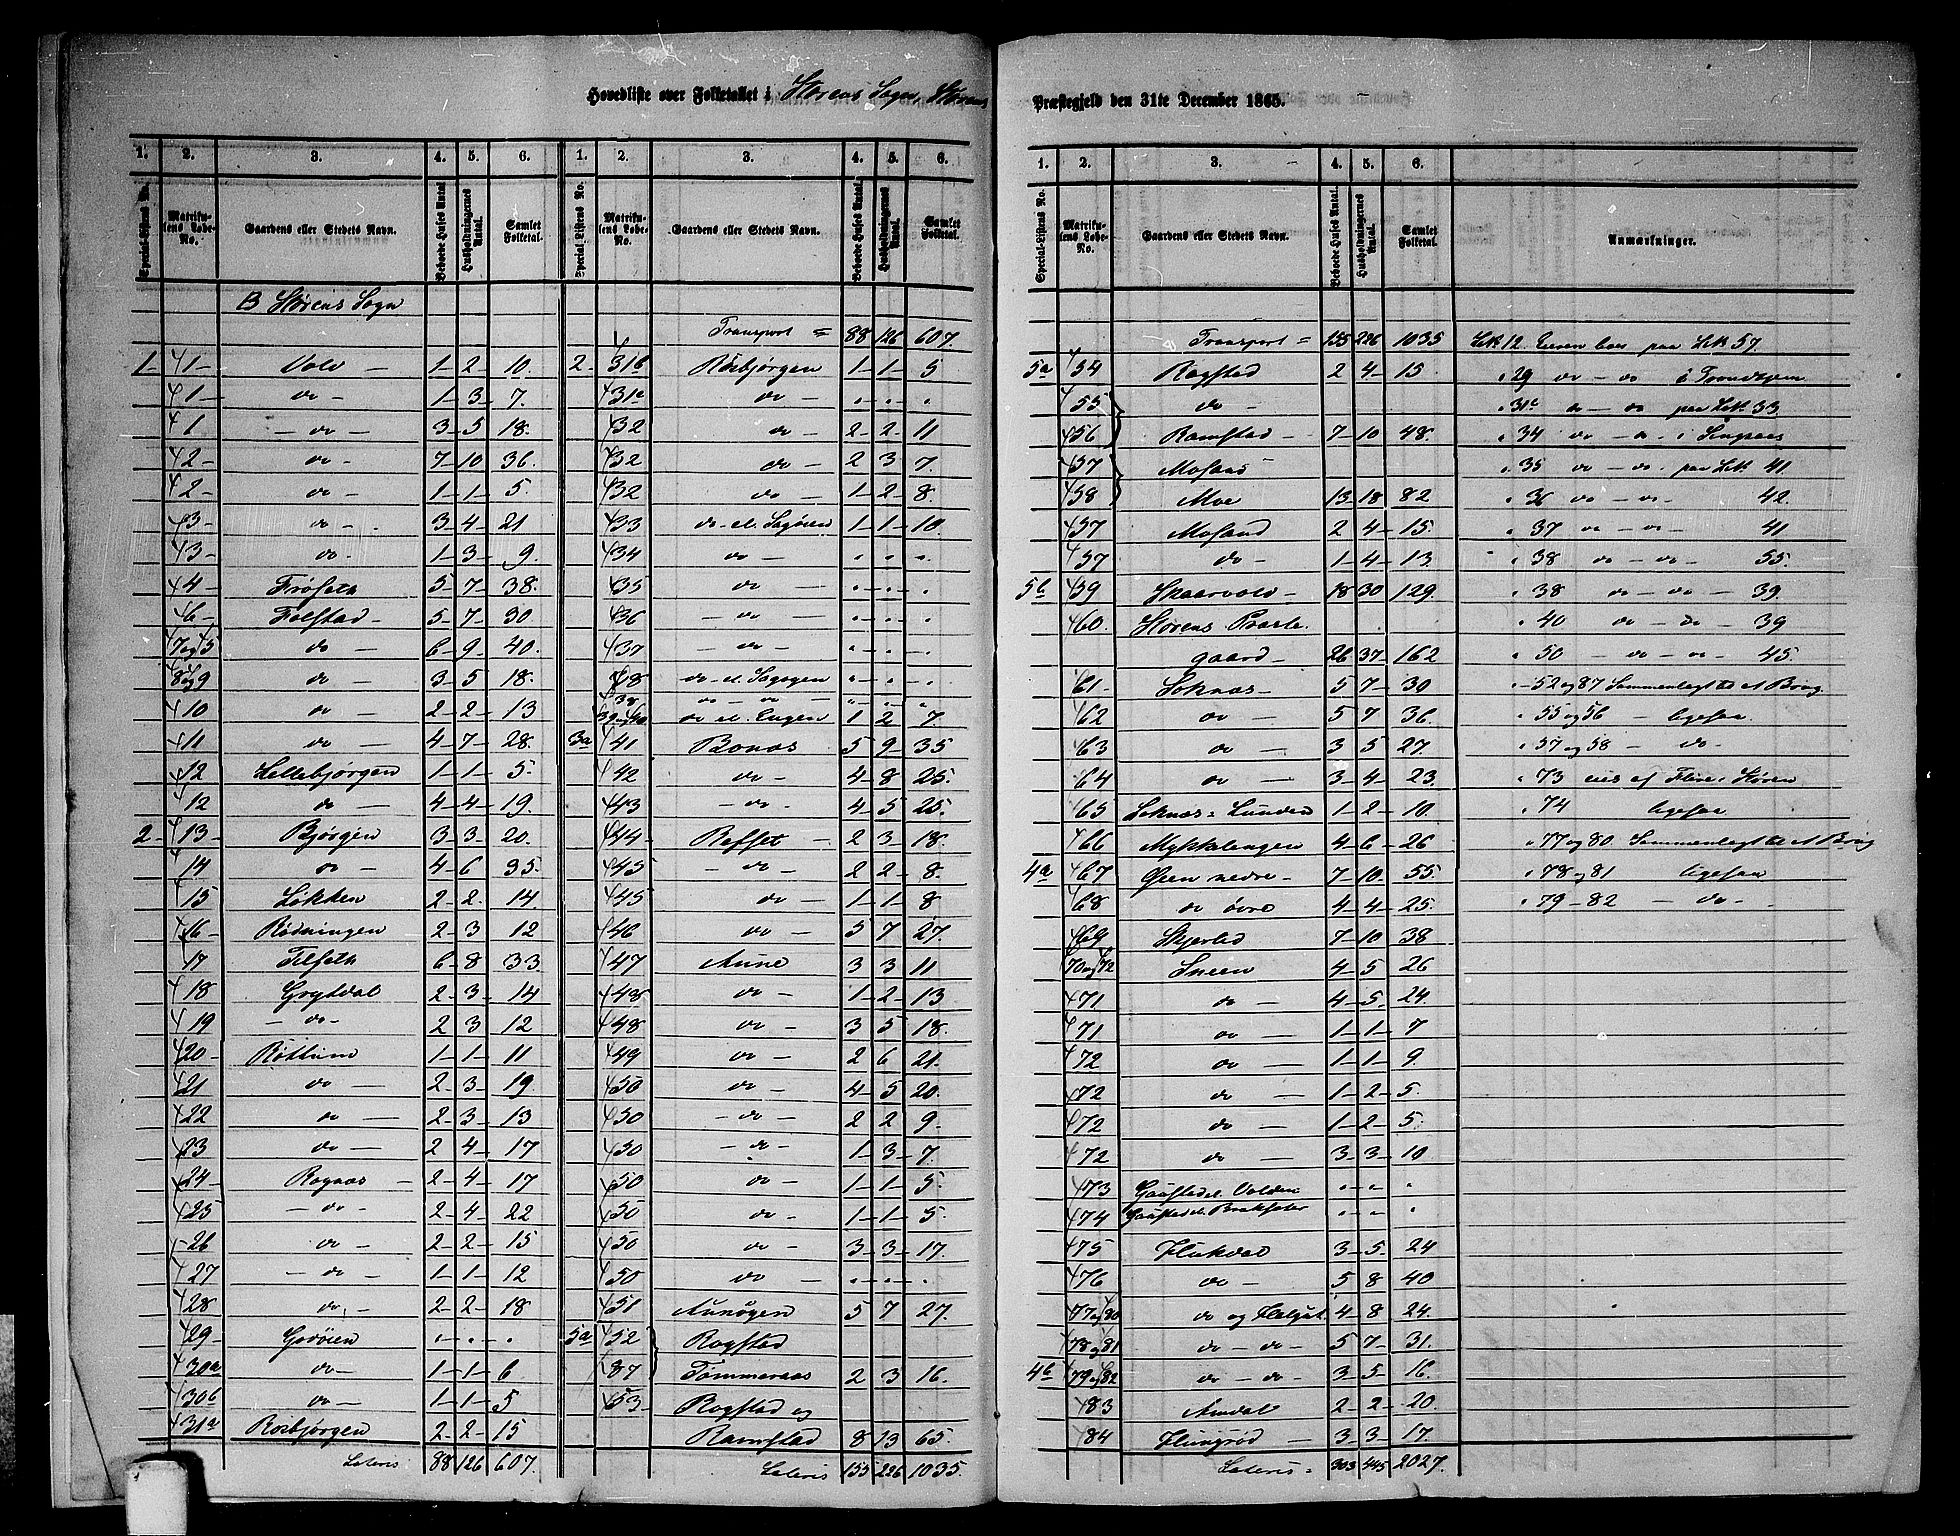 Hovedliste over Folketallet i Størens Sogn, Størens
Præstegjeld den 31te December 1865.
1. 2. 3. 4. 5. 6. 1. 2. 3. 4. 5. 6.
Special-Listens No. Matrikulens Løbe-No. Gaardens eller Stedets Navn. Beboede Huses Antal. Husholdningernes Antal. Samlet Folketal. Special-Listens No. Matrikulens Løbe-No. Gaardens eller Stedets Navn. Beboede Huses Antal. Husholdningernes Antal. Samlet Folketal.
B Størens Sogn
1 1 Vold 1 2 10.
1 do 1 3 7.
1 do 3 5 18.
2 do 7 10 36.
2 do 1 1 5.
3 do 3 4 21
3 do 1 3 9.
4 Frøseth 5 7 38.
6 Folstad 5 7 30
7 og 5 do 6 9 40.
8 og 9 do 3 5 18.
10 do 2 2 13
11 do 4 7 28.
12 Lillebjørgen 1 1 5.
12 do 4 4 19.
2 13 Bjørgen 3 3 20.
14 do 4 6 35.
15 Løkken 2 2 14.
16 Rødningen 2 3 12
17 Tilseth 6 8 33
18 Grytdal 2 3 14
19 do 2 3 12
20 Røttum 1 1 11
21 do 2 3 19.
22 do 2 3 13
23 do 2 4 17
24 Rognæs 2 4 17
25 do 2 4 22
26 do 2 2 15
27 do 1 1 12
28 do 2 2 18
29 Godøien . . .
30a do 1 1 6
30b do 1 1 5
31a Rosbjørgen 2 2 15
Lateris 88 126 607.
Transport = 88 126 607.
2 31b Rosbjørgen 1 1 5
31c do . . .
32 do 2 2 11
32 do 2 3 7.
32 do 1 2 8.
33 do el. Sagøien 1 1 10.
34 do . . .
35 do . . .
36 do . . .
37 do . . .
48 do el. Sagøgen . . .
38 do do . . .
39 og 40 do el. Engen 1 2 7.
3a 41 Bonæs 5 9 35
42 do 4 8 25.
43 do 4 5 25.
44 Refset 2 3 18.
45 do 2 2 8.
45 do 1 1 8
46 do 5 7 27.
47 Aune 3 3 11
48 do 1 2 13
48 do 3 5 18.
49 do 2 6 21.
50 do 4 5 20.
50 do 2 2 9.
50 do 1 3 7.
50 do 1 1 5.
50 do 1 1 5.
50 do 3 3 17.
50 do . . .
51 Aunøgen 5 7 27.
5a 52 Rogstad
87 Tømmeraas 2 3 16.
53 Rogstad og
Ramstad 8 13 65.
Lateris 155 226 1035.
1. 2. 3. 4. 5. 6.
Special-Listens No. Matrikulens Løbe-No. Gaardens eller Stedets Navn. Beboede Huses Antal. Husholdningernes Antal. Samlet Folketal. Anmærkninger.
Transport = 155 226 1035
5a 54 Rogstad 2 4 15.
55 do
56 Ramstad 7 10 48.
57 Mosand
58 Moe 13 18 82
57 Mosand 2 4 15.
57 do 1 4 13.
5b 59 Skaarvold 18 30 129.
60. Størens Præste-
gaard 26 37 162
61 Soknæs 5 7 30
62 do 5 7 36.
63 do 3 5 27.
64 do 3 4 23.
65 Soknæs Lunden 1 2 10.
66 Mykklengen 4 6 26
4a 67 Øien nedre 7 10 55
68 do øvre 4 4 25.
69 Skjerlid 7 10 38
70 og 72 Sneen 4 5 26
71 do 4 5 24.
71 do 1 1 7
72 do 1 1 9.
72 do 1 2 5.
72 do 1 2 5.
72 do 3 3 10
73 Gaasted el. Volden . . .
74 Gaasted el. Brakseter . . .
75 Hukdal 3 5 24
76 do 5 8 40
77 og 80 do og 4 8 24.
78 og 81 do do 5 7 31.
4b 79 og 82 do do 3 5 16.
83 Amdal 2 2 20.
84 Hungrød 3 3 17.
Lateris 303 445 2027.
Løb. 12 Eieren boer paa Løb. 57.
" 29 do do i Trondhjem
" 31c do do paa Løb. 33
" 34 do do i Singsaas
" 35 do do paa Løb. 41
" 36 do do 42.
" 37 do do 41
" 38 do do 55.
" 38 do do 39.
" 40 do do 39
" 50 do do 45.
" 52 og 87 Sammenlagt til et Brug
" 55 og 56 ligesaa
" 57 og 58 do
" 73 eies af Flere i Støren
" 74 ligesaa
" 77 og 80 Sammenlagt til et Brug
" 78 og 81 ligesaa
" 79 - 82 do